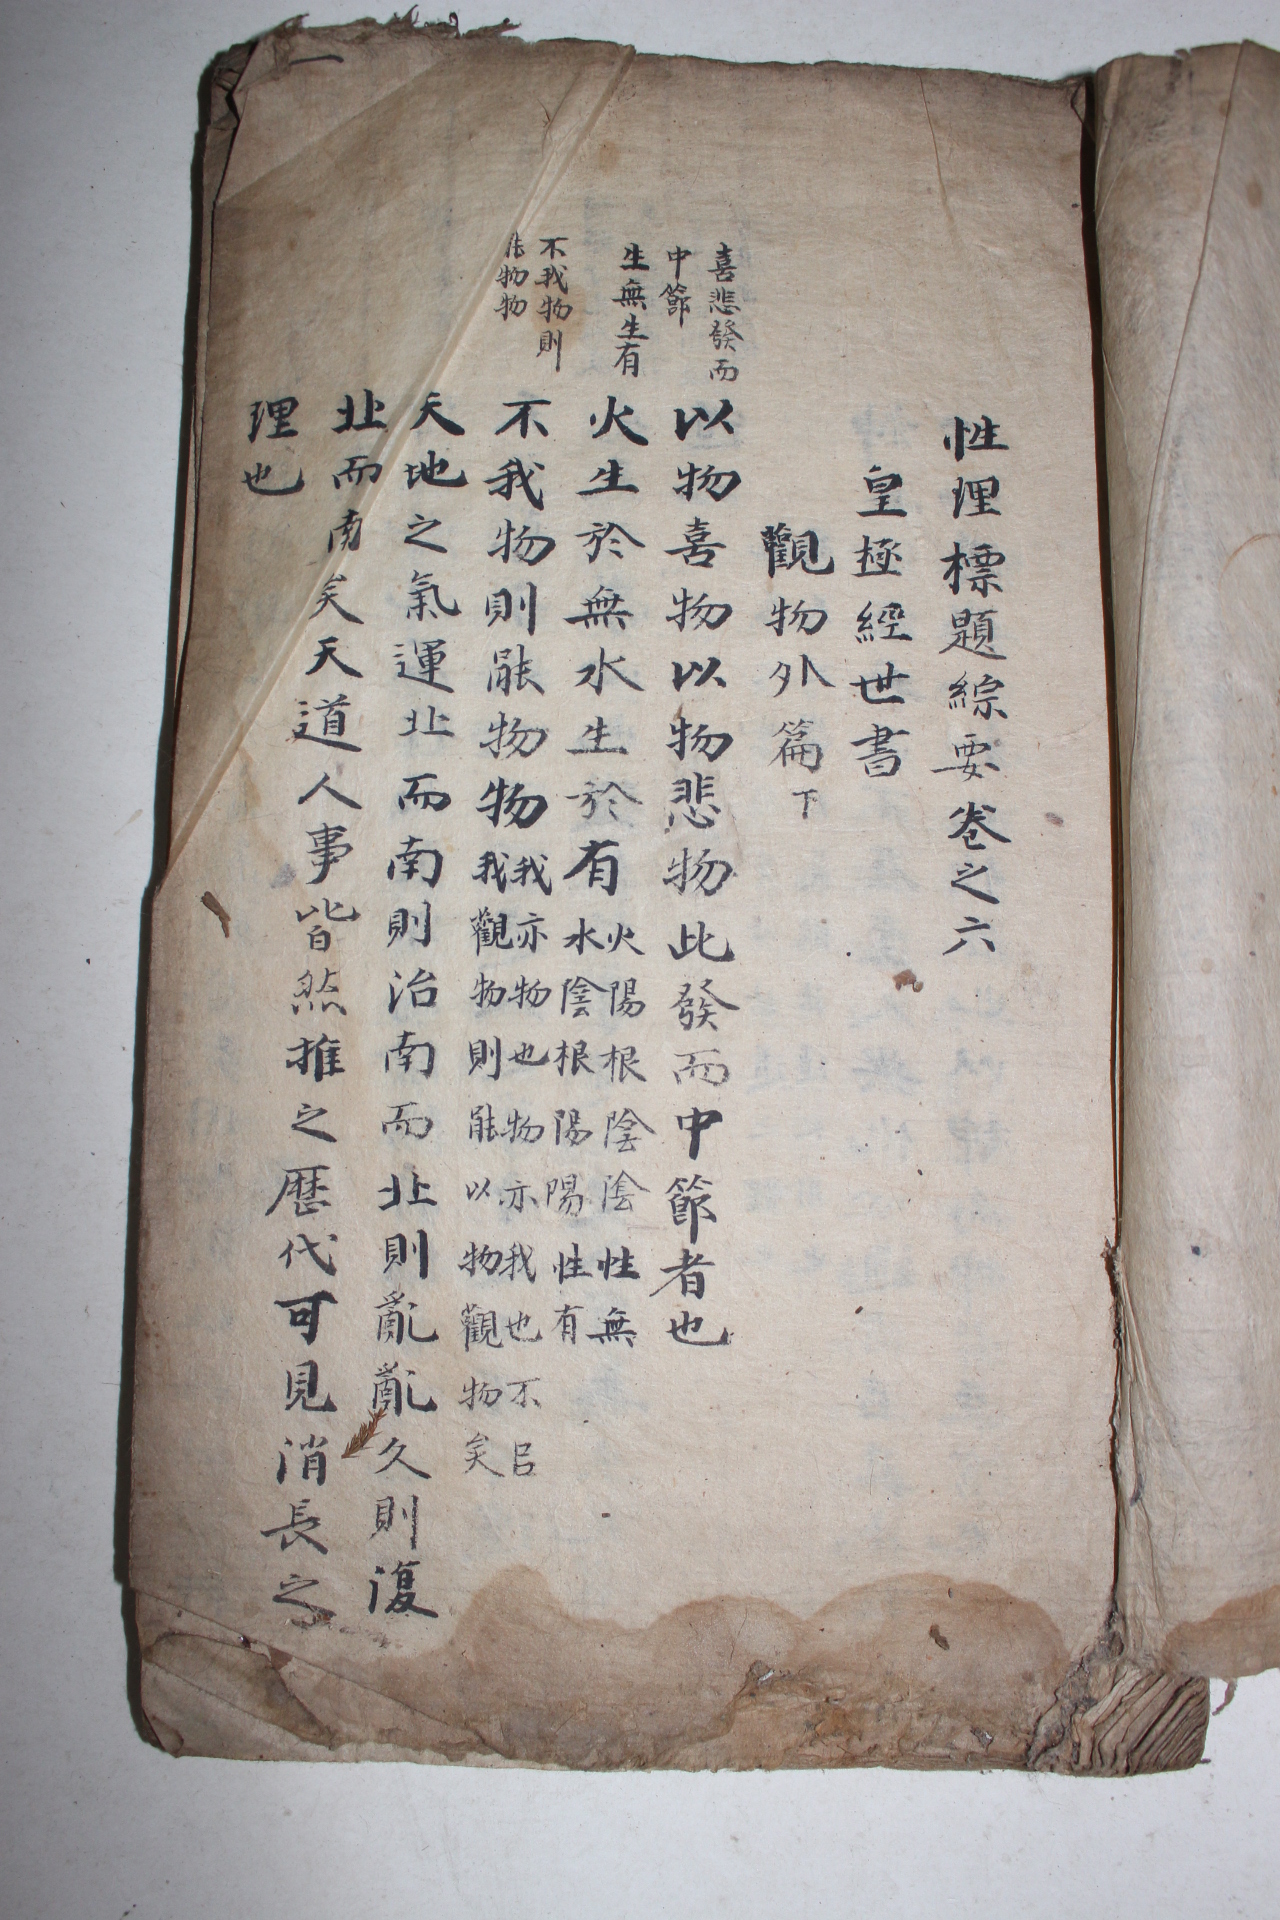 性理標題綜要卷之六
皇極經世書
觀物外篇下
喜悲發而
中節
以物喜物以物悲物此發而中節者也
生無生有
火生於無水生於有火陽根陰陰性無
水陰根陽陽性有
不我物則
能物物
不我物則能物物我亦物也物亦我也不吕
我觀物則能以物觀物矣
天地之氣運北而南則治南而北則亂亂久則復
北而南矣天道人事皆然推之歷代可見消長之
理也